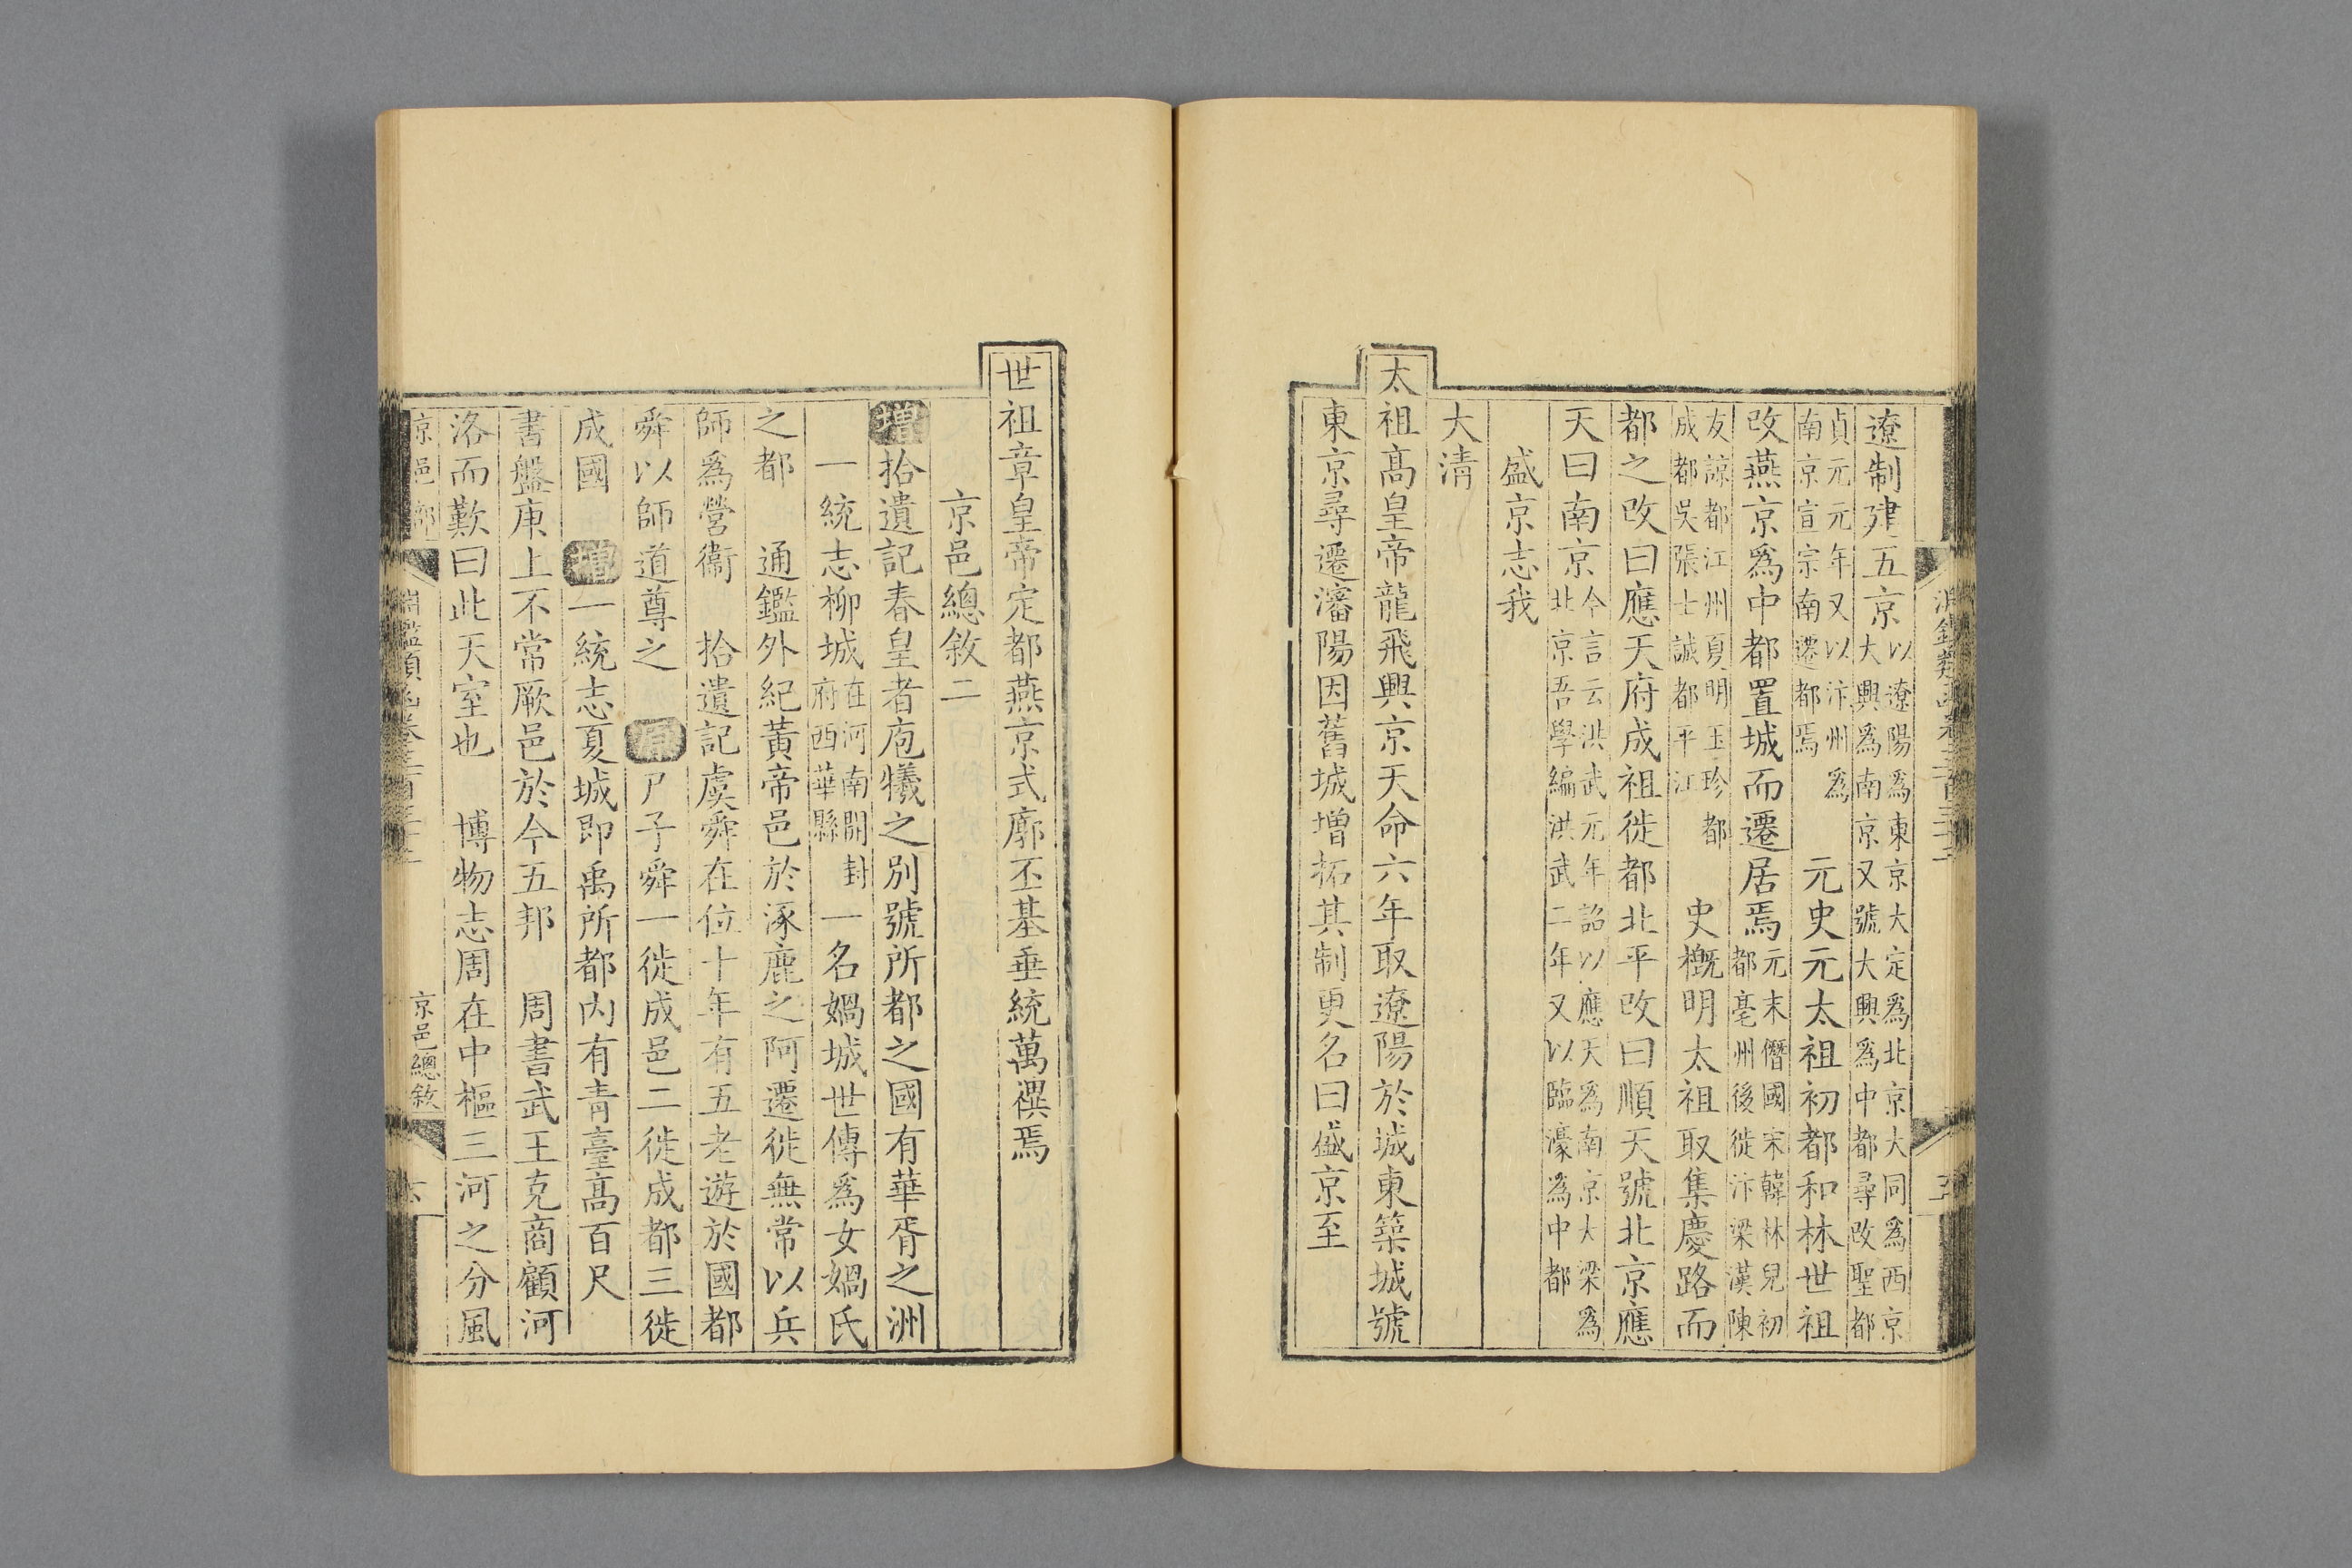 遼制建五京以遼陽為東京大定為北京大同為西京大興為南京又號大興為中都尋改聖都
貞元元年又以汴州為南京宣宗南遷都焉 元史元太祖初都和林世祖
改燕京為中都置城而遷居焉元末僭國宋韓林兒初都亳州後徙汴梁漢陳
友諒都江州夏明玉珍都成都吳張士誠都平江 史概明太祖取集慶路而
都之改曰應天府成祖徙都北平改曰順天號北京應
天曰南京今言云洪武元年詔以應天為南京大梁為北京吾學編洪武二年又以臨濠為中都
盛京志我
大清
太祖高皇帝龍飛興京天命六年取遼陽於城東築城號
東京尋遷瀋陽因舊城增拓其制更名曰盛京至
世祖章皇帝定都燕京式廓丕基垂統萬禩焉
京邑總敘二
增拾遺記春皇者庖犧之別號所都之國有華胥之洲
一統志柳城在河南開封府西華縣一名媧城世傳為女媧氏
之都 通鑑外紀黃帝邑於涿鹿之阿遷徙無常以兵
師為營衞 拾遺記虞舜在位十年有五老遊於國都
舜以師道尊之 原尸子舜一徙成邑二徙成都三徙
成國 增一統志夏城即禹所都內有青臺高百尺
書盤庚上不常厥邑於今五邦 周書武王克商顧河
洛而歎曰此天室也 博物志周在中樞三河之分風
京邑部 淵鑑類函卷三百三十三 京邑總敘 六